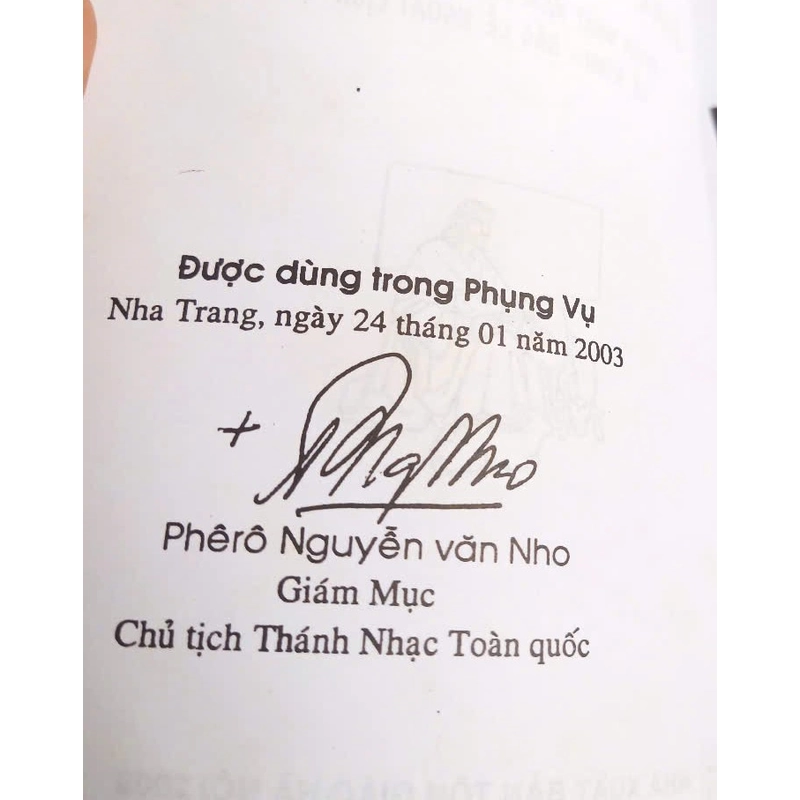 Được dùng trong Phụng Vụ
Nha Trang, ngày 24 tháng 01 năm 2003
+ PNgNho
Phêrô Nguyễn văn Nho
Giám Mục
Chủ tịch Thánh Nhạc Toàn quốc